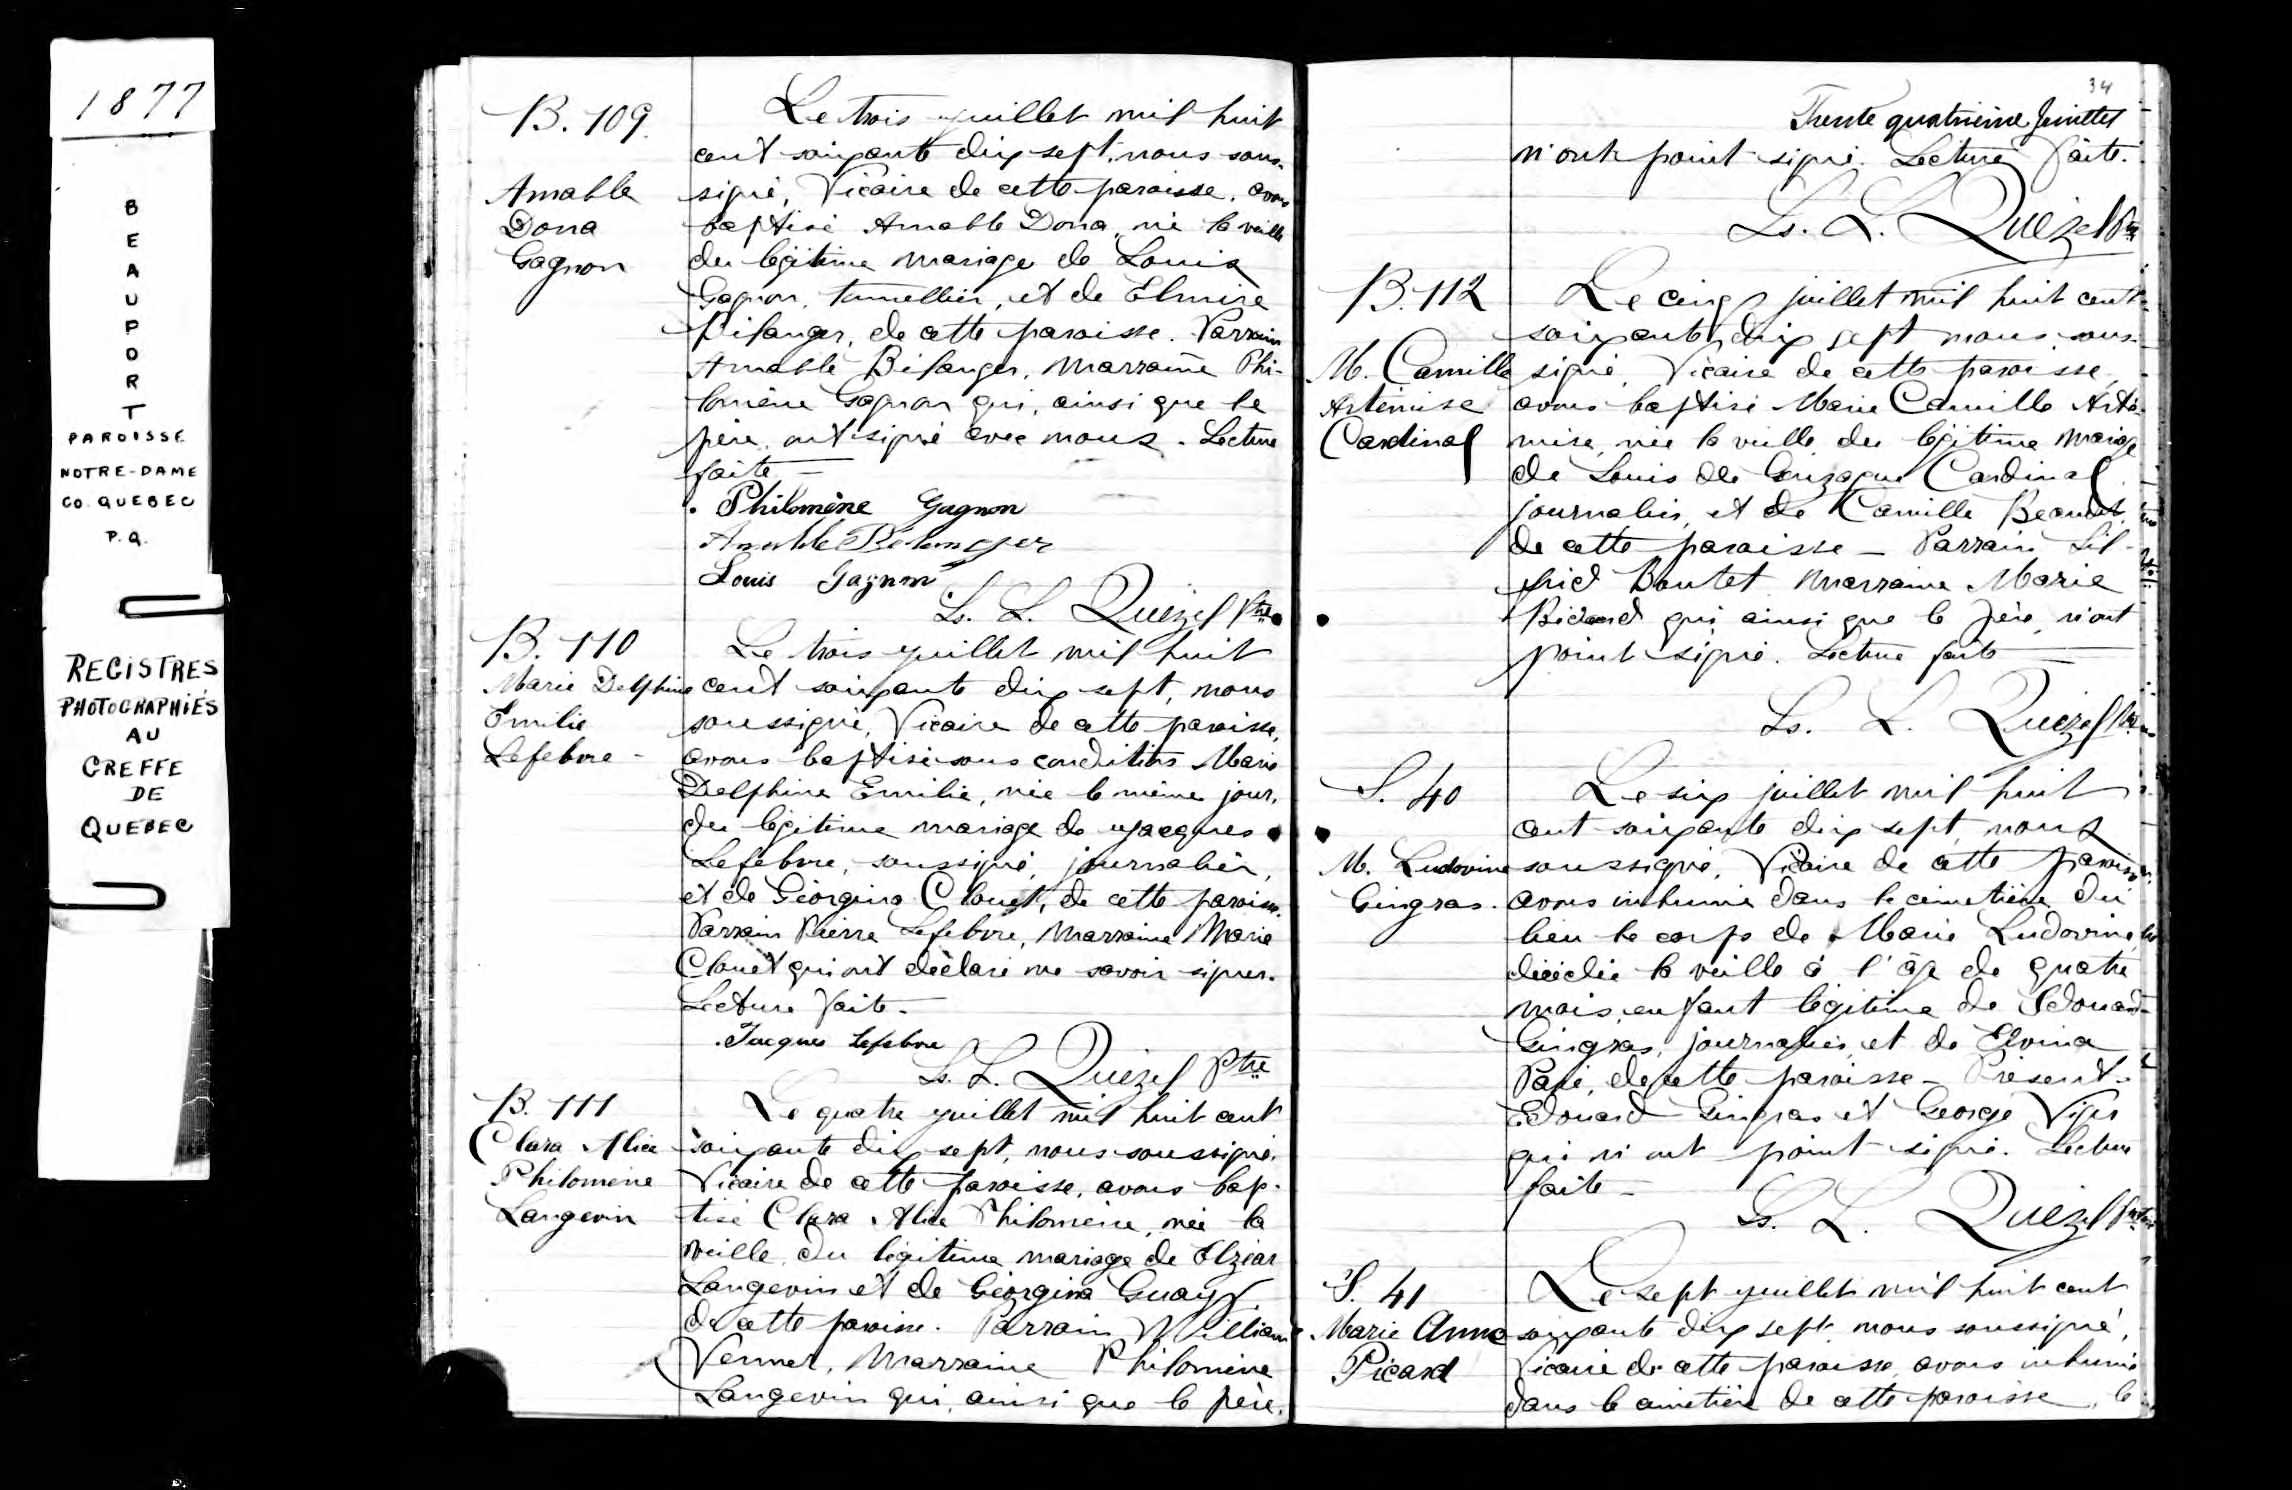 1877
B
E
A
U
P
O
R
T
PAROISSE
NOTRE-DAME
CO. QUEBEC
P.Q.
REGISTRES
PHOTOGRAPHIÉS
AU
GREFFE
DE
QUEBEC
B. 109.
Amable
Dona
Gagnon
Le trois juillet mil huit
cent soixante dix sept, nous sous-
signé, Vicaire de cette paroisse, avons
baptisé Amable Dona, né la veille
du légitime mariage de Louis
Gagnon, tunellier, et de Elmire
Bélanger, de cette paroisse. Parrain
Amable Bélanger, Marraine Phi-
lomène Gagnon qui, ainsi que le
père, ont signé avec nous. Lecture
faite —
Philomène Gagnon
Amable Belanger
Louis Gagnon
Ls. L. Quézel Ptre
B. 110
Marie Delphine
Emilie
Lefebvre -
Le trois juillet mil huit
cent soixante dix sept, nous
soussigné, Vicaire de cette paroisse,
avons baptisé sous conditions Marie
Delphine Emilie, née le même jour,
du légitime mariage de Jacques
Lefebvre, soussigné, journalier,
et de Géorgina Clouet, de cette paroisse.
Parrain Pierre Lefebvre, Marraine Marie
Clouet qui ont déclaré ne savoir signer.
Lecture faite -
Jacques Lefebvre
Ls. L. Quézel Ptre
B. 111
Clara Alice
Philomène
Langevin
Le quatre juillet mil huit cent
soixante dix sept, nous soussigné,
Vicaire de cette paroisse, avons bap-
tisé Clara Alice Philomène, née la
veille, du légitime mariage de Elzéar
Langevin et de Géorgina Guay,
de cette paroisse. Parrain William
Venner, Marraine Philomène
Langevin qui, ainsi que le père,
34
Trente quatrième feuillet
n'ont point signé. Lecture faite.
Ls. L. Quézel Ptre
B. 112
M. Camille
Artémise
Cardinal
Le cinq juillet mil huit cent
soixante dix sept nous sous-
signé, Vicaire de cette paroisse,
avons baptisé Marie Camille Arté-
mise, née la veille du légitime mariage
de Louis de Gonzague Cardinal
journalier, et de Camille
de cette paroisse — Parrain Sil-
frid Boutet Marraine Marie
qui ainsi que le père n'ont
point signé. Lecture faite —
Ls. L. Quézel Ptre
S. 40
M. Ludovine
Gingras.
Le six juillet mil huit
cent soixante dix sept nous
soussigné, Vicaire de cette paroisse
avons inhumé dans le cimetière du
lieu le corps de Marie Ludovine
décédée la veille à l'âge de quatre
mois, enfant légitime de Edouard
Gingras, journalier, et de Elvina
Paré, de cette paroisse — Présent
Edouard Gingras et George
qui n'ont point signé. Lecture
faite —
Ls. L. Quézel Ptre
S. 41
Marie Anne
Picard
Le sept juillet mil huit cent
soixante dix sept, nous soussigné,
Vicaire de cette paroisse, avons inhumé
dans le cimetière de cette paroisse, le